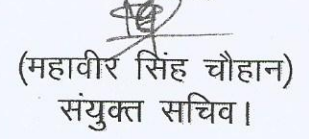 (महावीर सिंह चौहान)
संयुक्त सचिव।